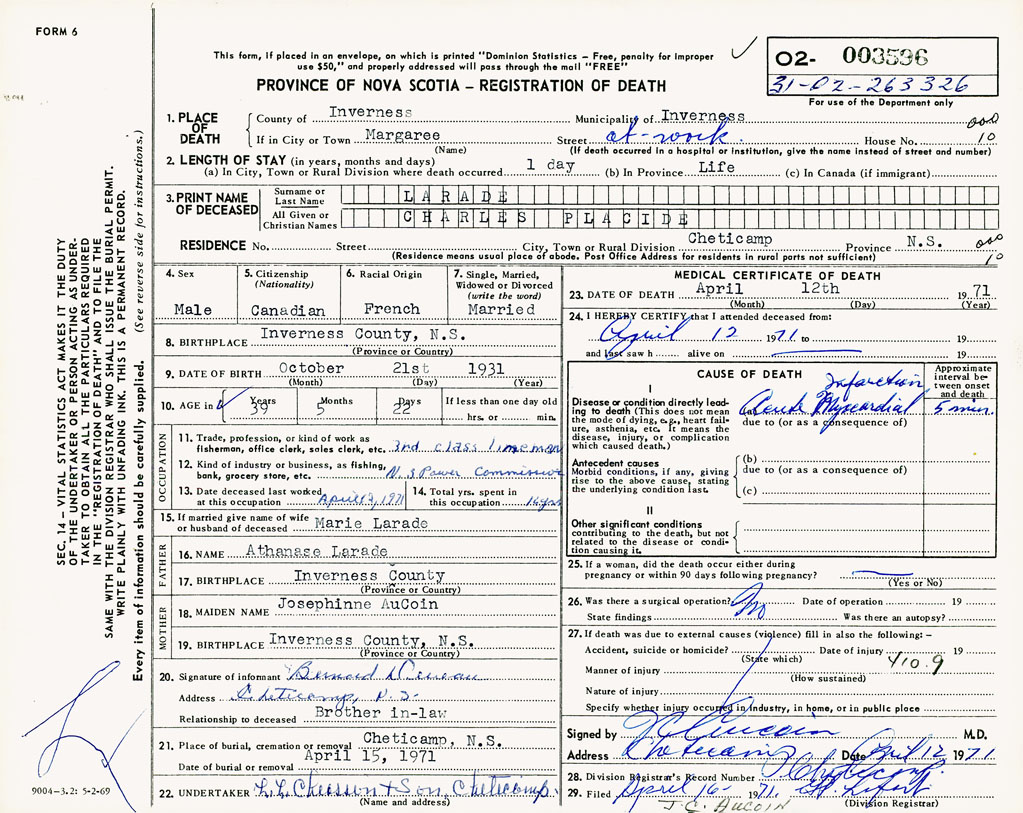 FORM 6
This form, if placed in an envelope, on which is printed "Dominion Statistics – Free, penalty for improper
use $50," and properly addressed will pass through the mail "FREE"
PROVINCE OF NOVA SCOTIA – REGISTRATION OF DEATH
O2- 003596
31-02-263326
For use of the Department only
SEC. 14 – VITAL STATISTICS ACT MAKES IT THE DUTY
OF THE UNDERTAKER OR PERSON ACTING AS UNDER-
TAKER TO OBTAIN ALL THE PARTICULARS REQUIRED
IN THE "REGISTRATION OF DEATH" AND TO FILE THE
SAME WITH THE DIVISION REGISTRAR WHO SHALL ISSUE THE BURIAL PERMIT.
WRITE PLAINLY WITH UNFADING INK. THIS IS A PERMANENT RECORD.
Every item of information should be carefully supplied. (See reverse side for instructions.)
1. PLACE OF DEATH
County of Inverness Municipality of Inverness 000
If in City or Town Margaree Street at work. House No. 10
(Name) (If death occurred in a hospital or institution, give the name instead of street and number)
2. LENGTH OF STAY (in years, months and days)
(a) In City, Town or Rural Division where death occurred 1 day (b) In Province Life (c) In Canada (if immigrant)
3. PRINT NAME OF DECEASED
Surname or Last Name LARADE
All Given or Christian Names CHARLES PLACIDE
RESIDENCE No. Street City, Town or Rural Division Cheticamp Province N.S. 000
(Residence means usual place of abode. Post Office Address for residents in rural parts not sufficient) 10
4. Sex Male
5. Citizenship (Nationality) Canadian
6. Racial Origin French
7. Single, Married, Widowed or Divorced (write the word) Married
8. BIRTHPLACE Inverness County, N.S.
(Province or Country)
9. DATE OF BIRTH October 21st 1931
(Month) (Day) (Year)
10. AGE in Years 39 Months 5 Days 22 If less than one day old
hrs. or min.
OCCUPATION
11. Trade, profession, or kind of work as
fisherman, office clerk, sales clerk, etc. 3rd class lineman
12. Kind of industry or business, as fishing,
bank, grocery store, etc. N.S Power Commission
13. Date deceased last worked
at this occupation April 12, 1971
14. Total yrs. spent in
this occupation
15. If married give name of wife
or husband of deceased Marie Larade
FATHER
16. NAME Athanase Larade
17. BIRTHPLACE Inverness County
(Province or Country)
MOTHER
18. MAIDEN NAME Josephinne AuCoin
19. BIRTHPLACE Inverness County, N.S.
(Province or Country)
20. Signature of informant Bernard
Address Cheticamp, N.S.
Relationship to deceased Brother in-law
21. Place of burial, cremation or removal Cheticamp, N.S.
Date of burial or removal April 15, 1971
22. UNDERTAKER L.L. Chiasson & Son, Cheticamp.
(Name and address)
9004–3.2: 5-2-69
MEDICAL CERTIFICATE OF DEATH
23. DATE OF DEATH April 12th 1971
(Month) (Day) (Year)
24. I HEREBY CERTIFY that I attended deceased from:
April 12 1971 to 19
and last saw h alive on 19
CAUSE OF DEATH
Approximate interval between onset and death
I
Disease or condition directly lead-
ing to death (This does not mean
the mode of dying, e.g., heart fail-
ure, asthenia, etc. It means the
disease, injury, or complication
which caused death.)
(a) Acute Myocardial Infarction 5 min.
due to (or as a consequence of)
Antecedent causes
Morbid conditions, if any, giving
rise to the above cause, stating
the underlying condition last.
(b)
due to (or as a consequence of)
(c)
II
Other significant conditions
contributing to the death, but not
related to the disease or condi-
tion causing it.
25. If a woman, did the death occur either during
pregnancy or within 90 days following pregnancy?
(Yes or No)
26. Was there a surgical operation? No Date of operation 19
State findings Was there an autopsy?
27. If death was due to external causes (violence) fill in also the following: –
Accident, suicide or homicide? Date of injury 19
(State which) 410.9
Manner of injury
(How sustained)
Nature of injury
Specify whether injury occurred in industry, in home, or in public place
Signed by J C Aucoin M.D.
Address Cheticamp Date April 12 1971
28. Division Registrar's Record Number Cheticamp
29. Filed April 16 - 1971.
J.C. AUCOIN (Division Registrar)